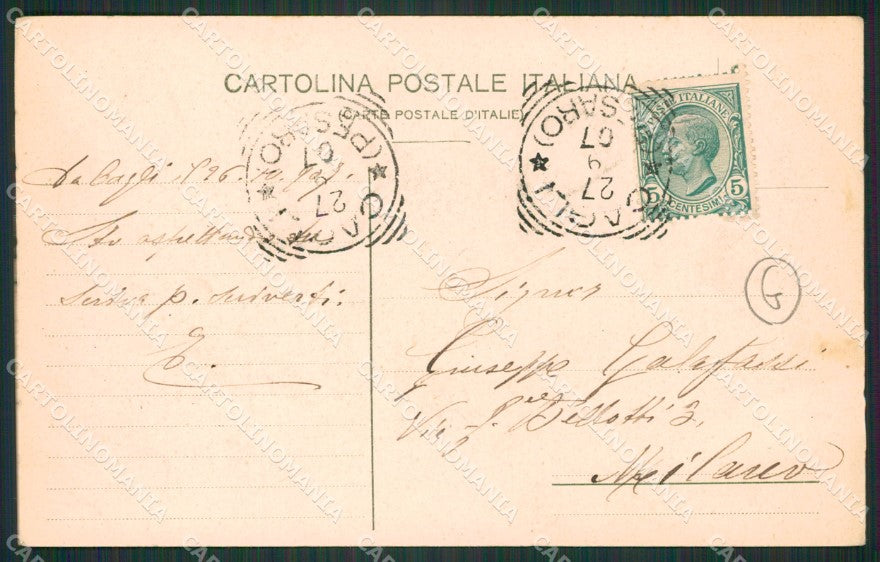 CARTOLINA POSTALE ITALIANA
(CARTE POSTALE D'ITALIE)
CAGLI (PESARO)
27 9 07
CAGLI (PESARO)
27 9 07
POSTE ITALIANE
5 5
CENTESIMI
Da Cagli 26
Sto aspettando
p. scriverti.
E.
5
Signor
Giuseppe Galafassi
Via F. Bellotti 3.
Milano
CARTOLINOMANIA